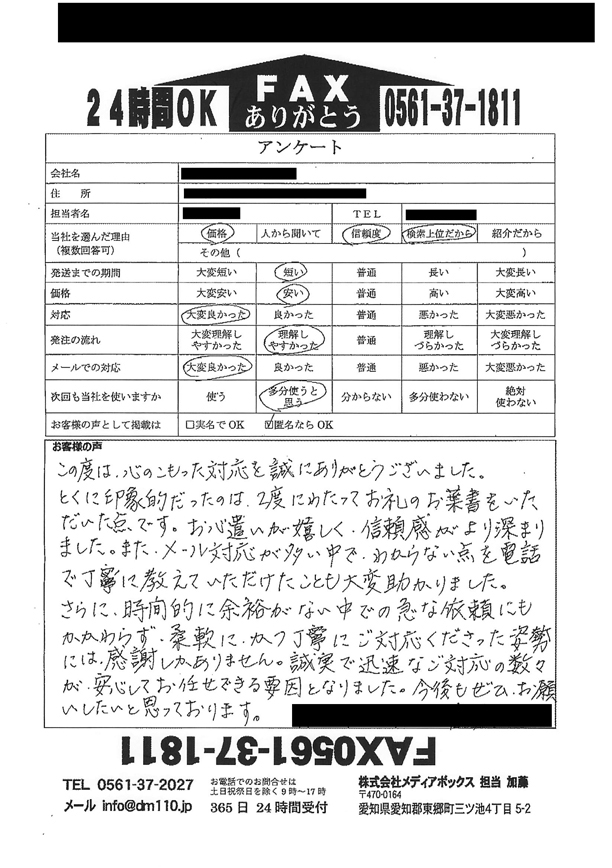 24時間OK
FAX
ありがとう
0561-37-1811
アンケート
会社名
住 所
担当者名 TEL
当社を選んだ理由
（複数回答可）
価格 人から聞いて 信頼度 検索上位だから 紹介だから
その他（ ）
発送までの期間 大変短い 短い 普通 長い 大変長い
価格 大変安い 安い 普通 高い 大変高い
対応 大変良かった 良かった 普通 悪かった 大変悪かった
発注の流れ 大変理解しやすかった 理解しやすかった 普通 理解しづらかった 大変理解しづらかった
メールでの対応 大変良かった 良かった 普通 悪かった 大変悪かった
次回も当社を使いますか 使う 多分使うと思う 分からない 多分使わない 絶対使わない
お客様の声として掲載は □実名でOK ☑匿名ならOK
お客様の声
この度は、心のこもった対応を誠にありがとうございました。
とくに印象的だったのは、2度にわたってお礼のお葉書をいた
だいた点です。お心遣いが嬉しく、信頼感がより深まり
ました。また、メール対応が多い中で、わからない点を電話
で丁寧に教えていただけたことも大変助かりました。
さらに、時間的に余裕がない中での急な依頼にも
かかわらず、柔軟に、かつ丁寧にご対応くださった姿勢
には、感謝しかありません。誠実で迅速なご対応の数々
が、安心してお任せできる要因となりました。今後もぜひ、お願
いしたいと思っております。
FAX0561-37-1811
TEL 0561-37-2027
メール info@dm110.jp
お電話でのお問合せは
土日祝祭日を除く9時～17時
365日 24時間受付
株式会社メディアボックス 担当 加藤
〒470-0164
愛知県愛知郡東郷町三ツ池4丁目5-2